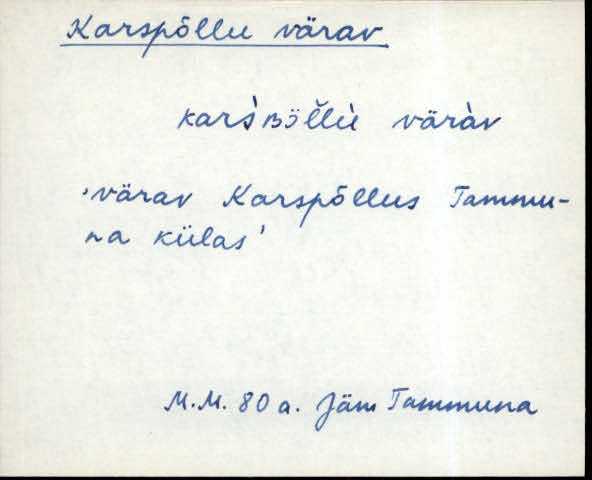 Karspõllu värav
karsʙöl̆lu väràv
'värav Karspõllus Tammu-
na külas'
M.M. 80 a. Jäm Tammuna